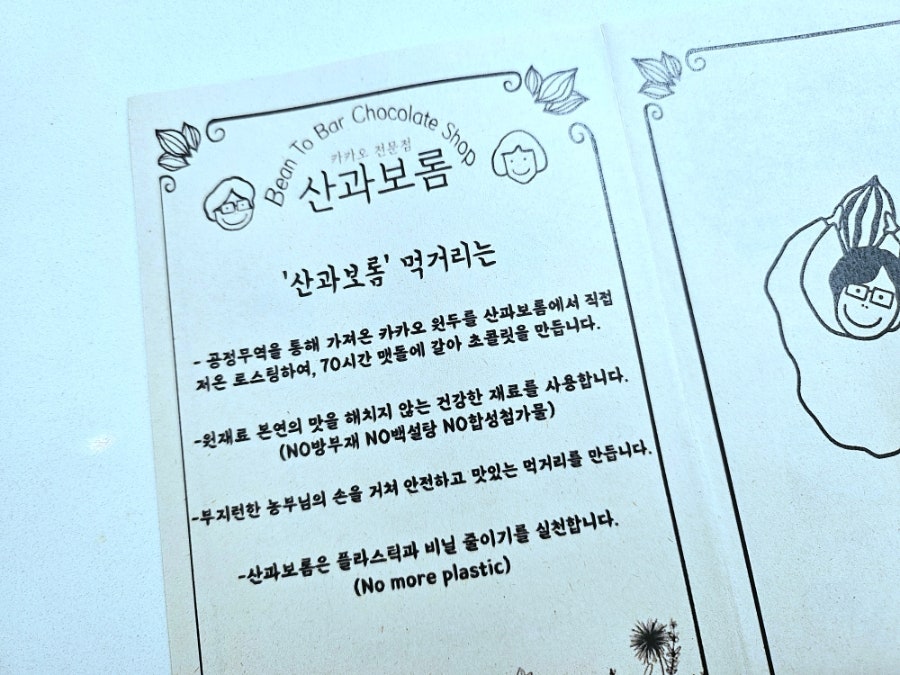 Bean To Bar Chocolate Shop
카카오 전문점
산과보롬
'산과보롬' 먹거리는
- 공정무역을 통해 가져온 카카오 원두를 산과보롬에서 직접
저온 로스팅하여, 70시간 맷돌에 갈아 초콜릿을 만듭니다.
-원재료 본연의 맛을 해치지 않는 건강한 재료를 사용합니다.
(NO방부재 NO백설탕 NO합성첨가물)
-부지런한 농부님의 손을 거쳐 안전하고 맛있는 먹거리를 만듭니다.
-산과보롬은 플라스틱과 비닐 줄이기를 실천합니다.
(No more plastic)